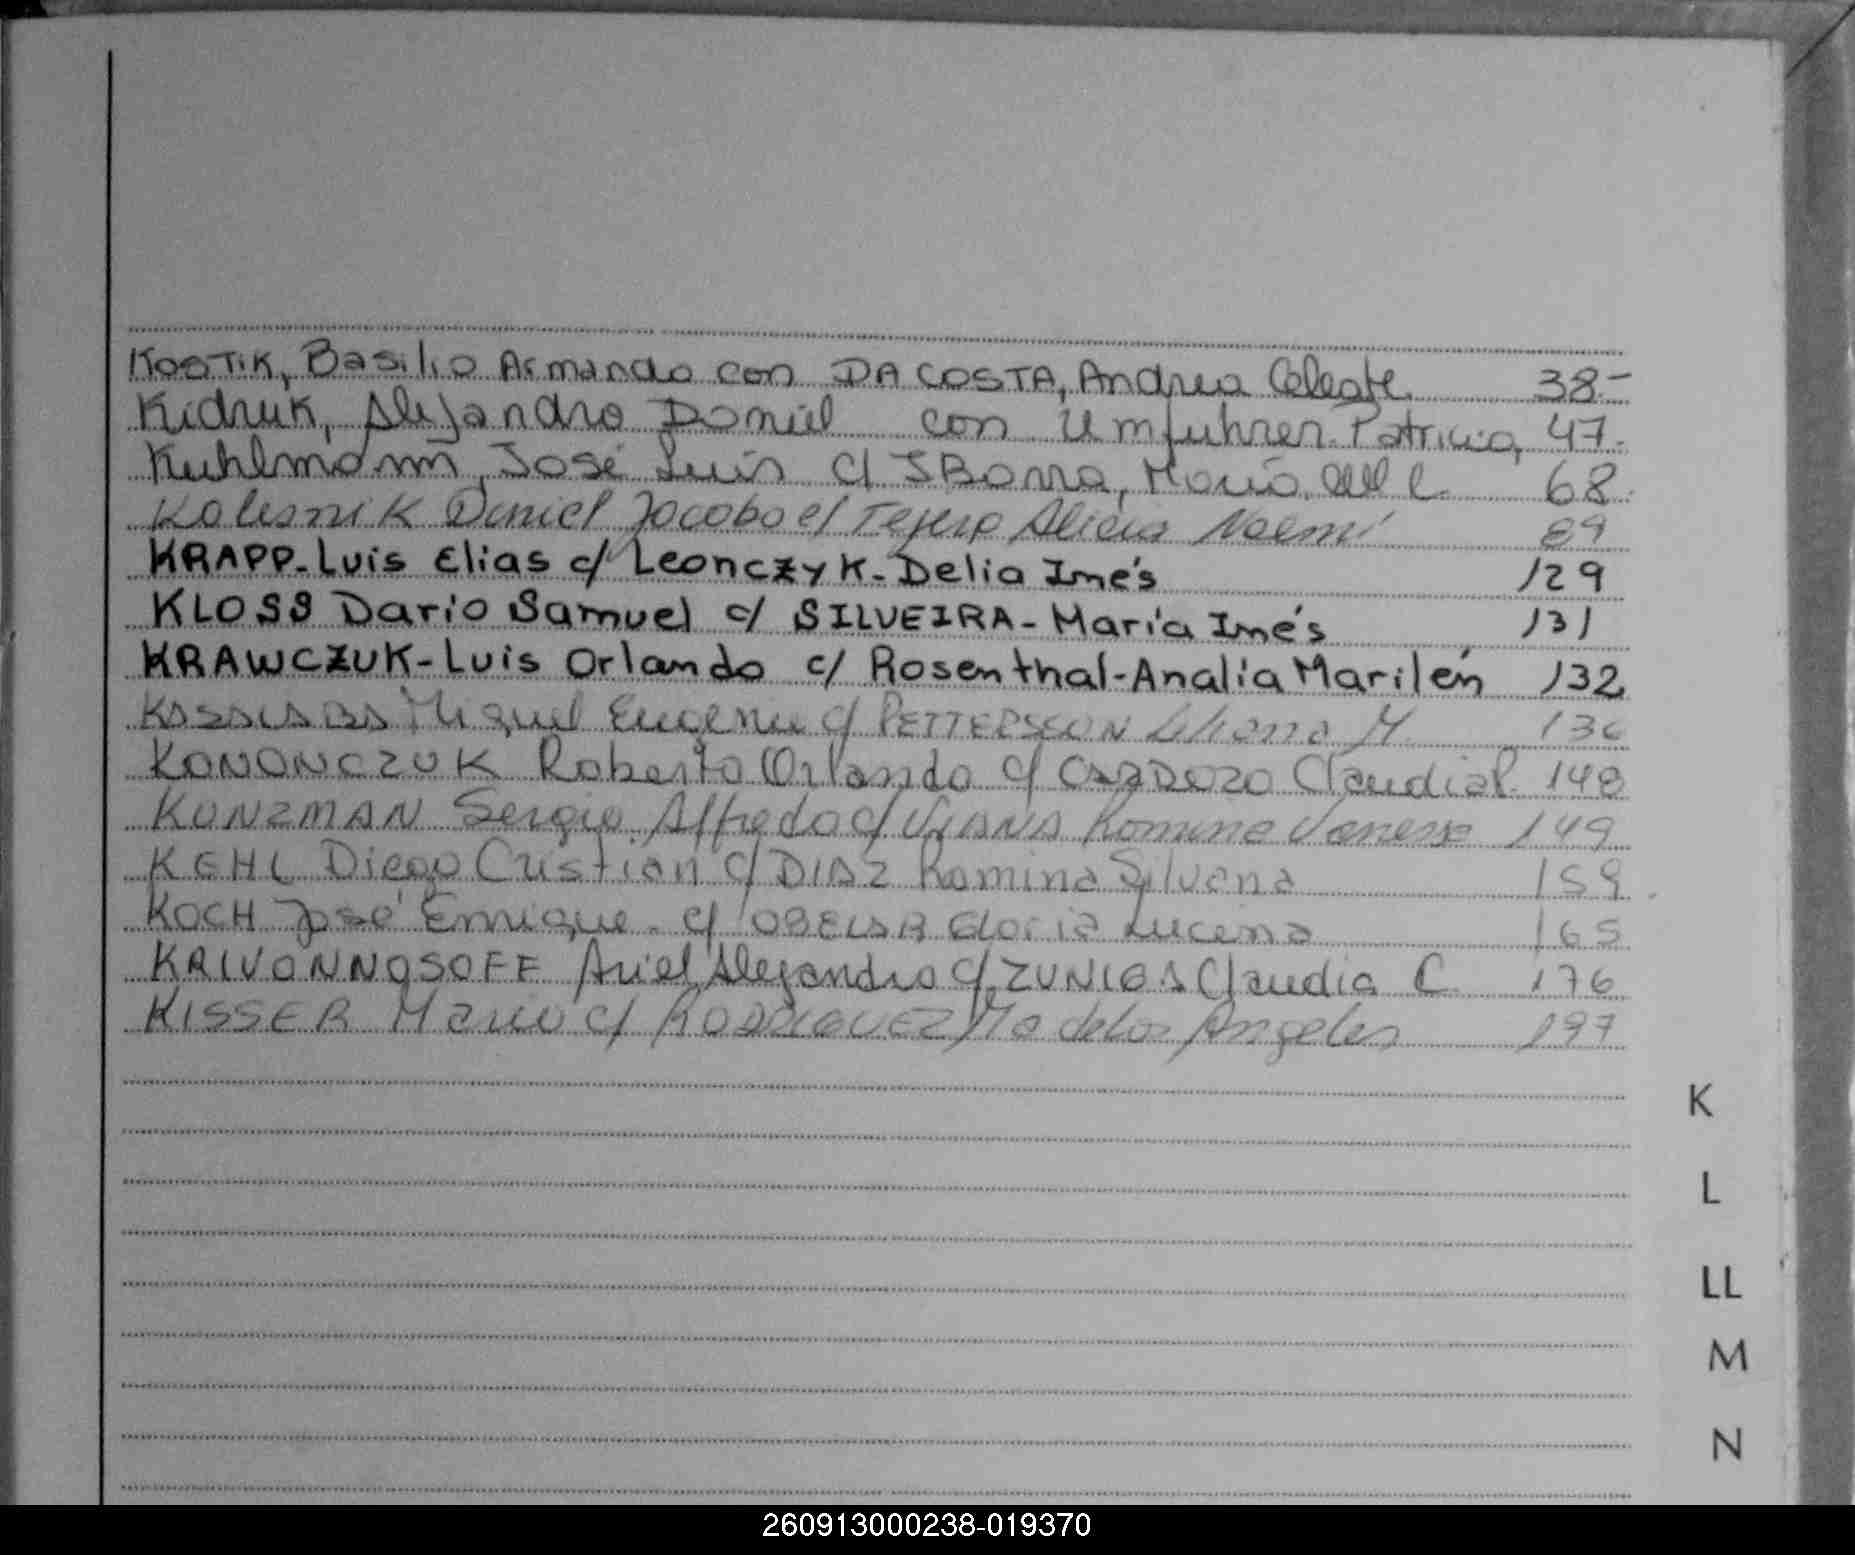 KOSTIK, Basilio Armando con DA COSTA, Andrea Celeste 38-
Kidruk, Alejandro Daniel con Umfuhrer Patricia, 47.
Kuhlmann, José Luis c/ IBARRA, María del C. 68.
Kolesnik Daniel Jacobo c/ Tejero Alicia Noemí 89
KRAPP-Luis Elias c/ Leonczyk-Delia Inés 129
KLOSS Dario Samuel c/ SILVEIRA-María Inés 131
KRAWCZUK-Luis Orlando c/ Rosenthal-Analía Marilén 132
Miguel Eugenio c/ PETTERSSON Liliana M. 136
KONONCZUK Roberto Orlando c/ CARDOZO Claudia 148
KUNZMAN Sergio Alfredo c/ VIANA Romina Vanessa 149
KEHL Diego Cristian c/ DIAZ Romina Silvana 159
KOCH José Enrique c/ OBELAR Gloria Lucena 165
KRIVONNOSOFF Ariel Alejandro c/ ZUNIGA Claudia C. 176
KISSER Mario c/ RODRIGUEZ Ma de los Angeles 197
K
L
LL
M
N
260913000238-019370